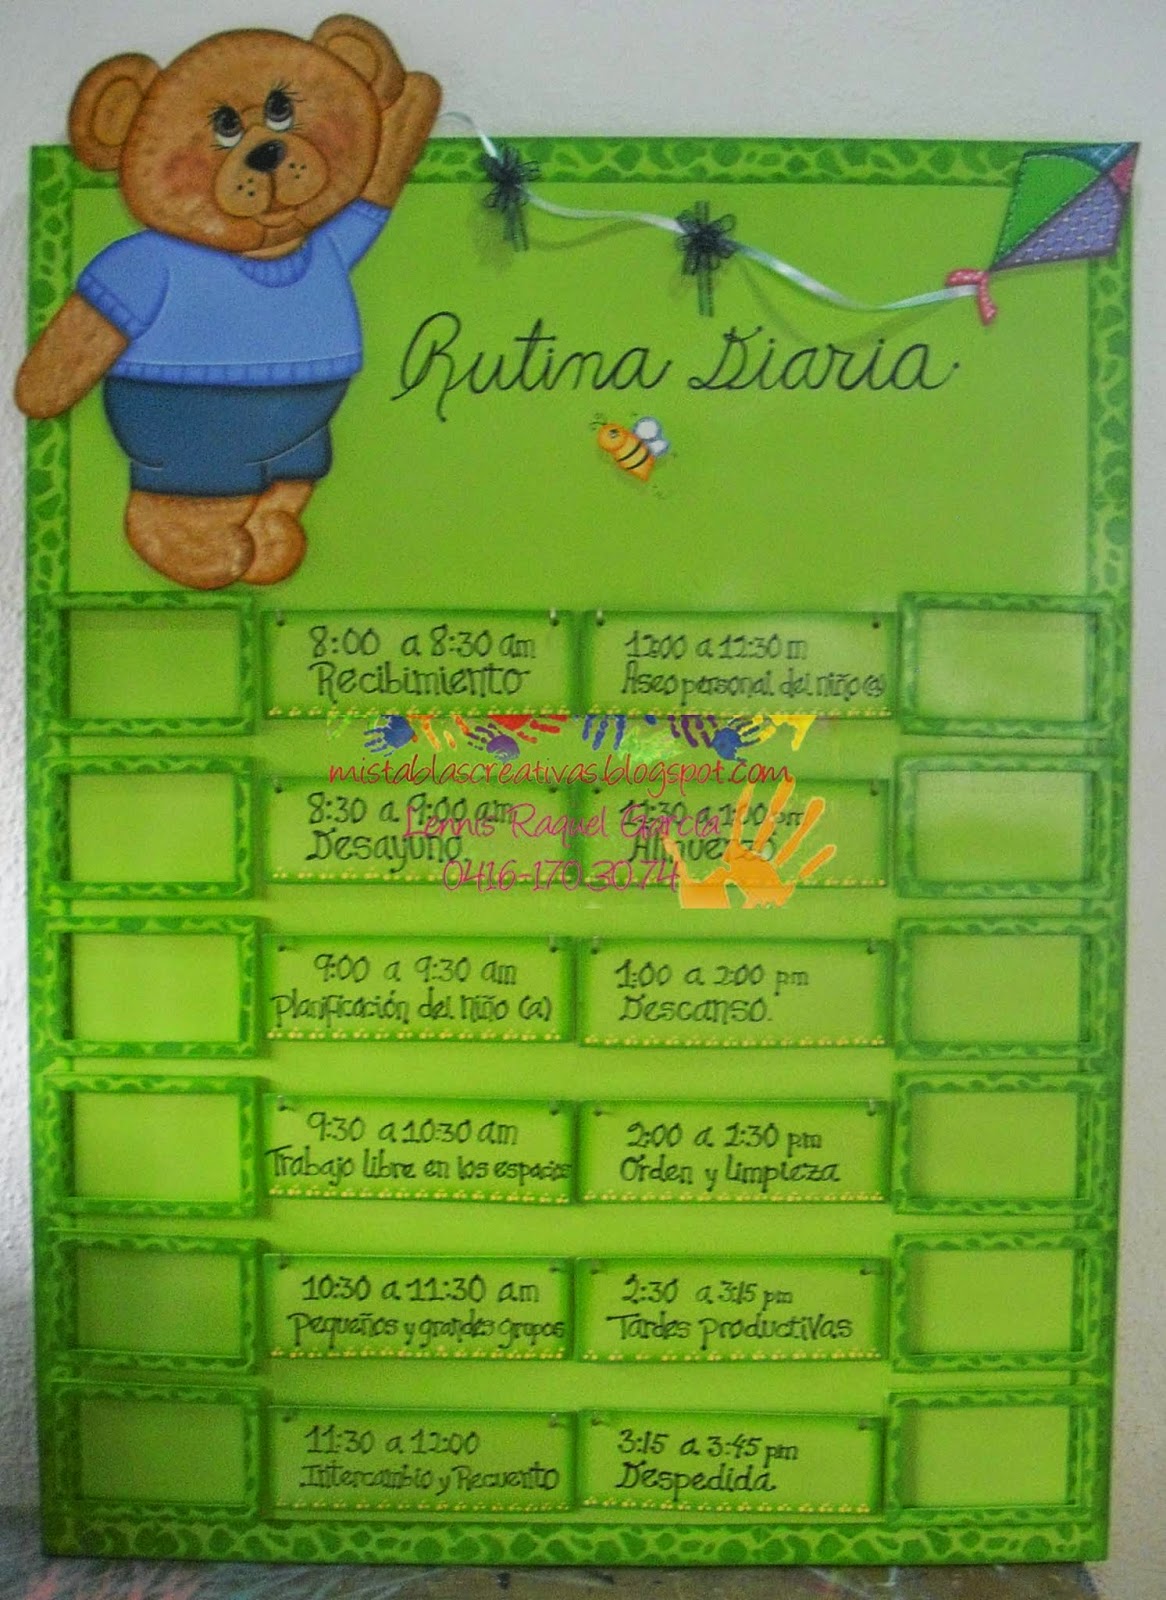 Rutina Diaria
8:00 a 8:30 am
Recibimiento
12:00 a 12:30 m
Aseo personal del niño(a)
mistablascreativas.blogspot.com
8:30 a 9:00 am
Desayuno
12:30 a 1:00 pm
Almuerzo
Lennis Raquel García
0416-170.30.74
9:00 a 9:30 am
Planificación del niño (a)
1:00 a 2:00 pm
Descanso.
9:30 a 10:30 am
Trabajo libre en los espacios
2:00 a 2:30 pm
Orden y limpieza
10:30 a 11:30 am
Pequeños y grandes grupos
2:30 a 3:15 pm
Tardes productivas
11:30 a 12:00
Intercambio y Recuento
3:15 a 3:45 pm
Despedida